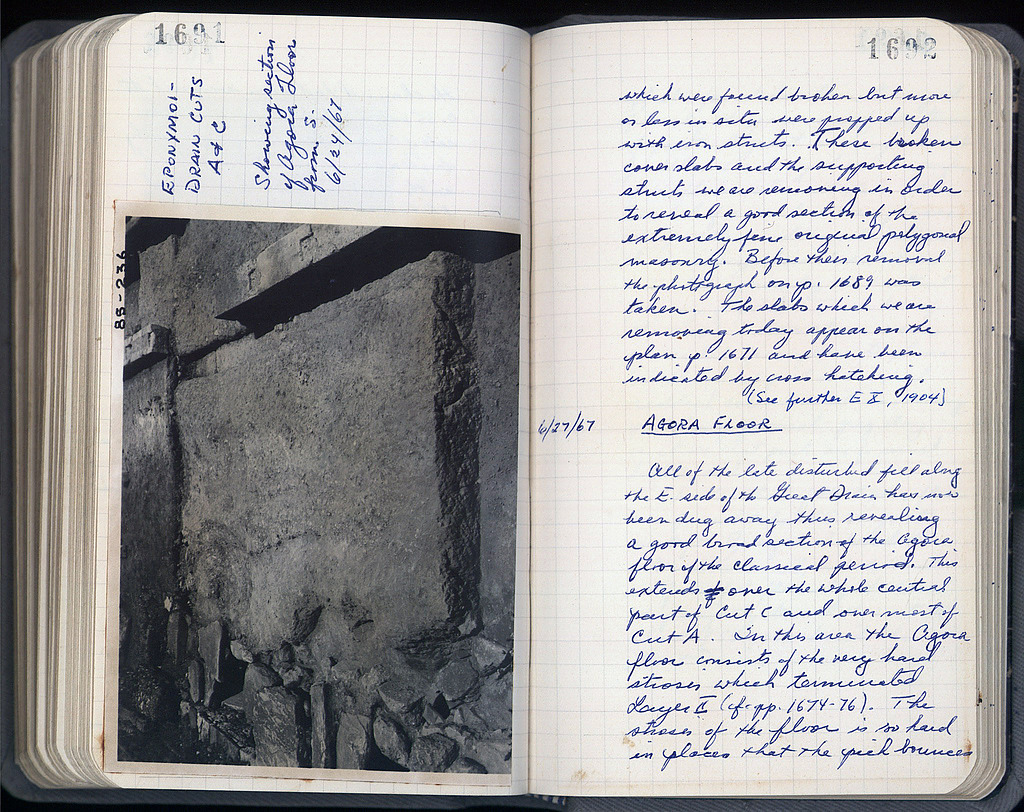 1691
EPONYMOI-
DRAIN CUTS
A & C
Showing section
of Agora Floor
from S.
6/24/67
88-236
1692
which were found broken but more
or less in situ were propped up
with iron struts. These broken
cover slabs and the supporting
struts we are removing in order
to reveal a good section of the
extremely fine original polygonal
masonry. Before their removal
the photograph on p. 1689 was
taken. The slabs which we are
removing today appear on the
plan p. 1671 and have been
indicated by cross hatching.
(See further E X, 1904)
6/27/67 AGORA FLOOR
All of the late disturbed fill along
the E. side of the Great Drain has now
been dug away thus revealing
a good broad section of the Agora
floor of the classical period. This
extends over the whole central
part of Cut C and over most of
Cut A. In this area the Agora
floor consists of the very hard
stroses which terminated
Layer II (cf. pp. 1674-76). The
stroses of the floor is so hard
in places that the pick bounces